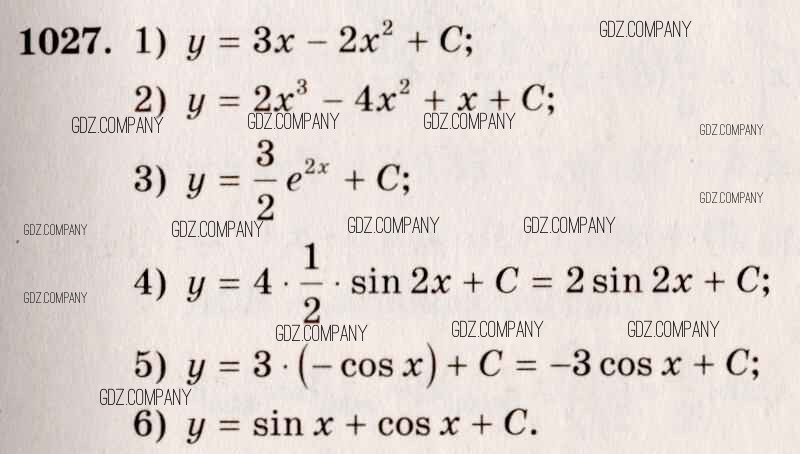 GDZ.COMPANY
1027. 1) y = 3x − 2x² + C;
2) y = 2x³ − 4x² + x + C;
GDZ.COMPANY GDZ.COMPANY GDZ.COMPANY GDZ.COMPANY
3) y = 3/2 e²ˣ + C;
GDZ.COMPANY
GDZ.COMPANY GDZ.COMPANY GDZ.COMPANY GDZ.COMPANY
4) y = 4 · 1/2 · sin 2x + C = 2 sin 2x + C;
GDZ.COMPANY
GDZ.COMPANY GDZ.COMPANY GDZ.COMPANY
5) y = 3 · (− cos x) + C = −3 cos x + C;
GDZ.COMPANY
6) y = sin x + cos x + C.